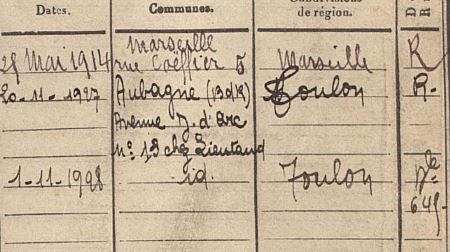 Dates. Communes. Subdivisions de région. D R
29 Mai 1914 Marseille rue Coëffier 5 Marseille R
20-11-1927 Aubagne (BdR) Toulon R.
Avenue J. d'Arc
n° 13 chez Lieutaud
1-11-1928 id. Toulon
649